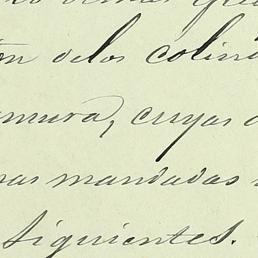 delos colin
mura, cuyas
nas mandadas
siguientes.